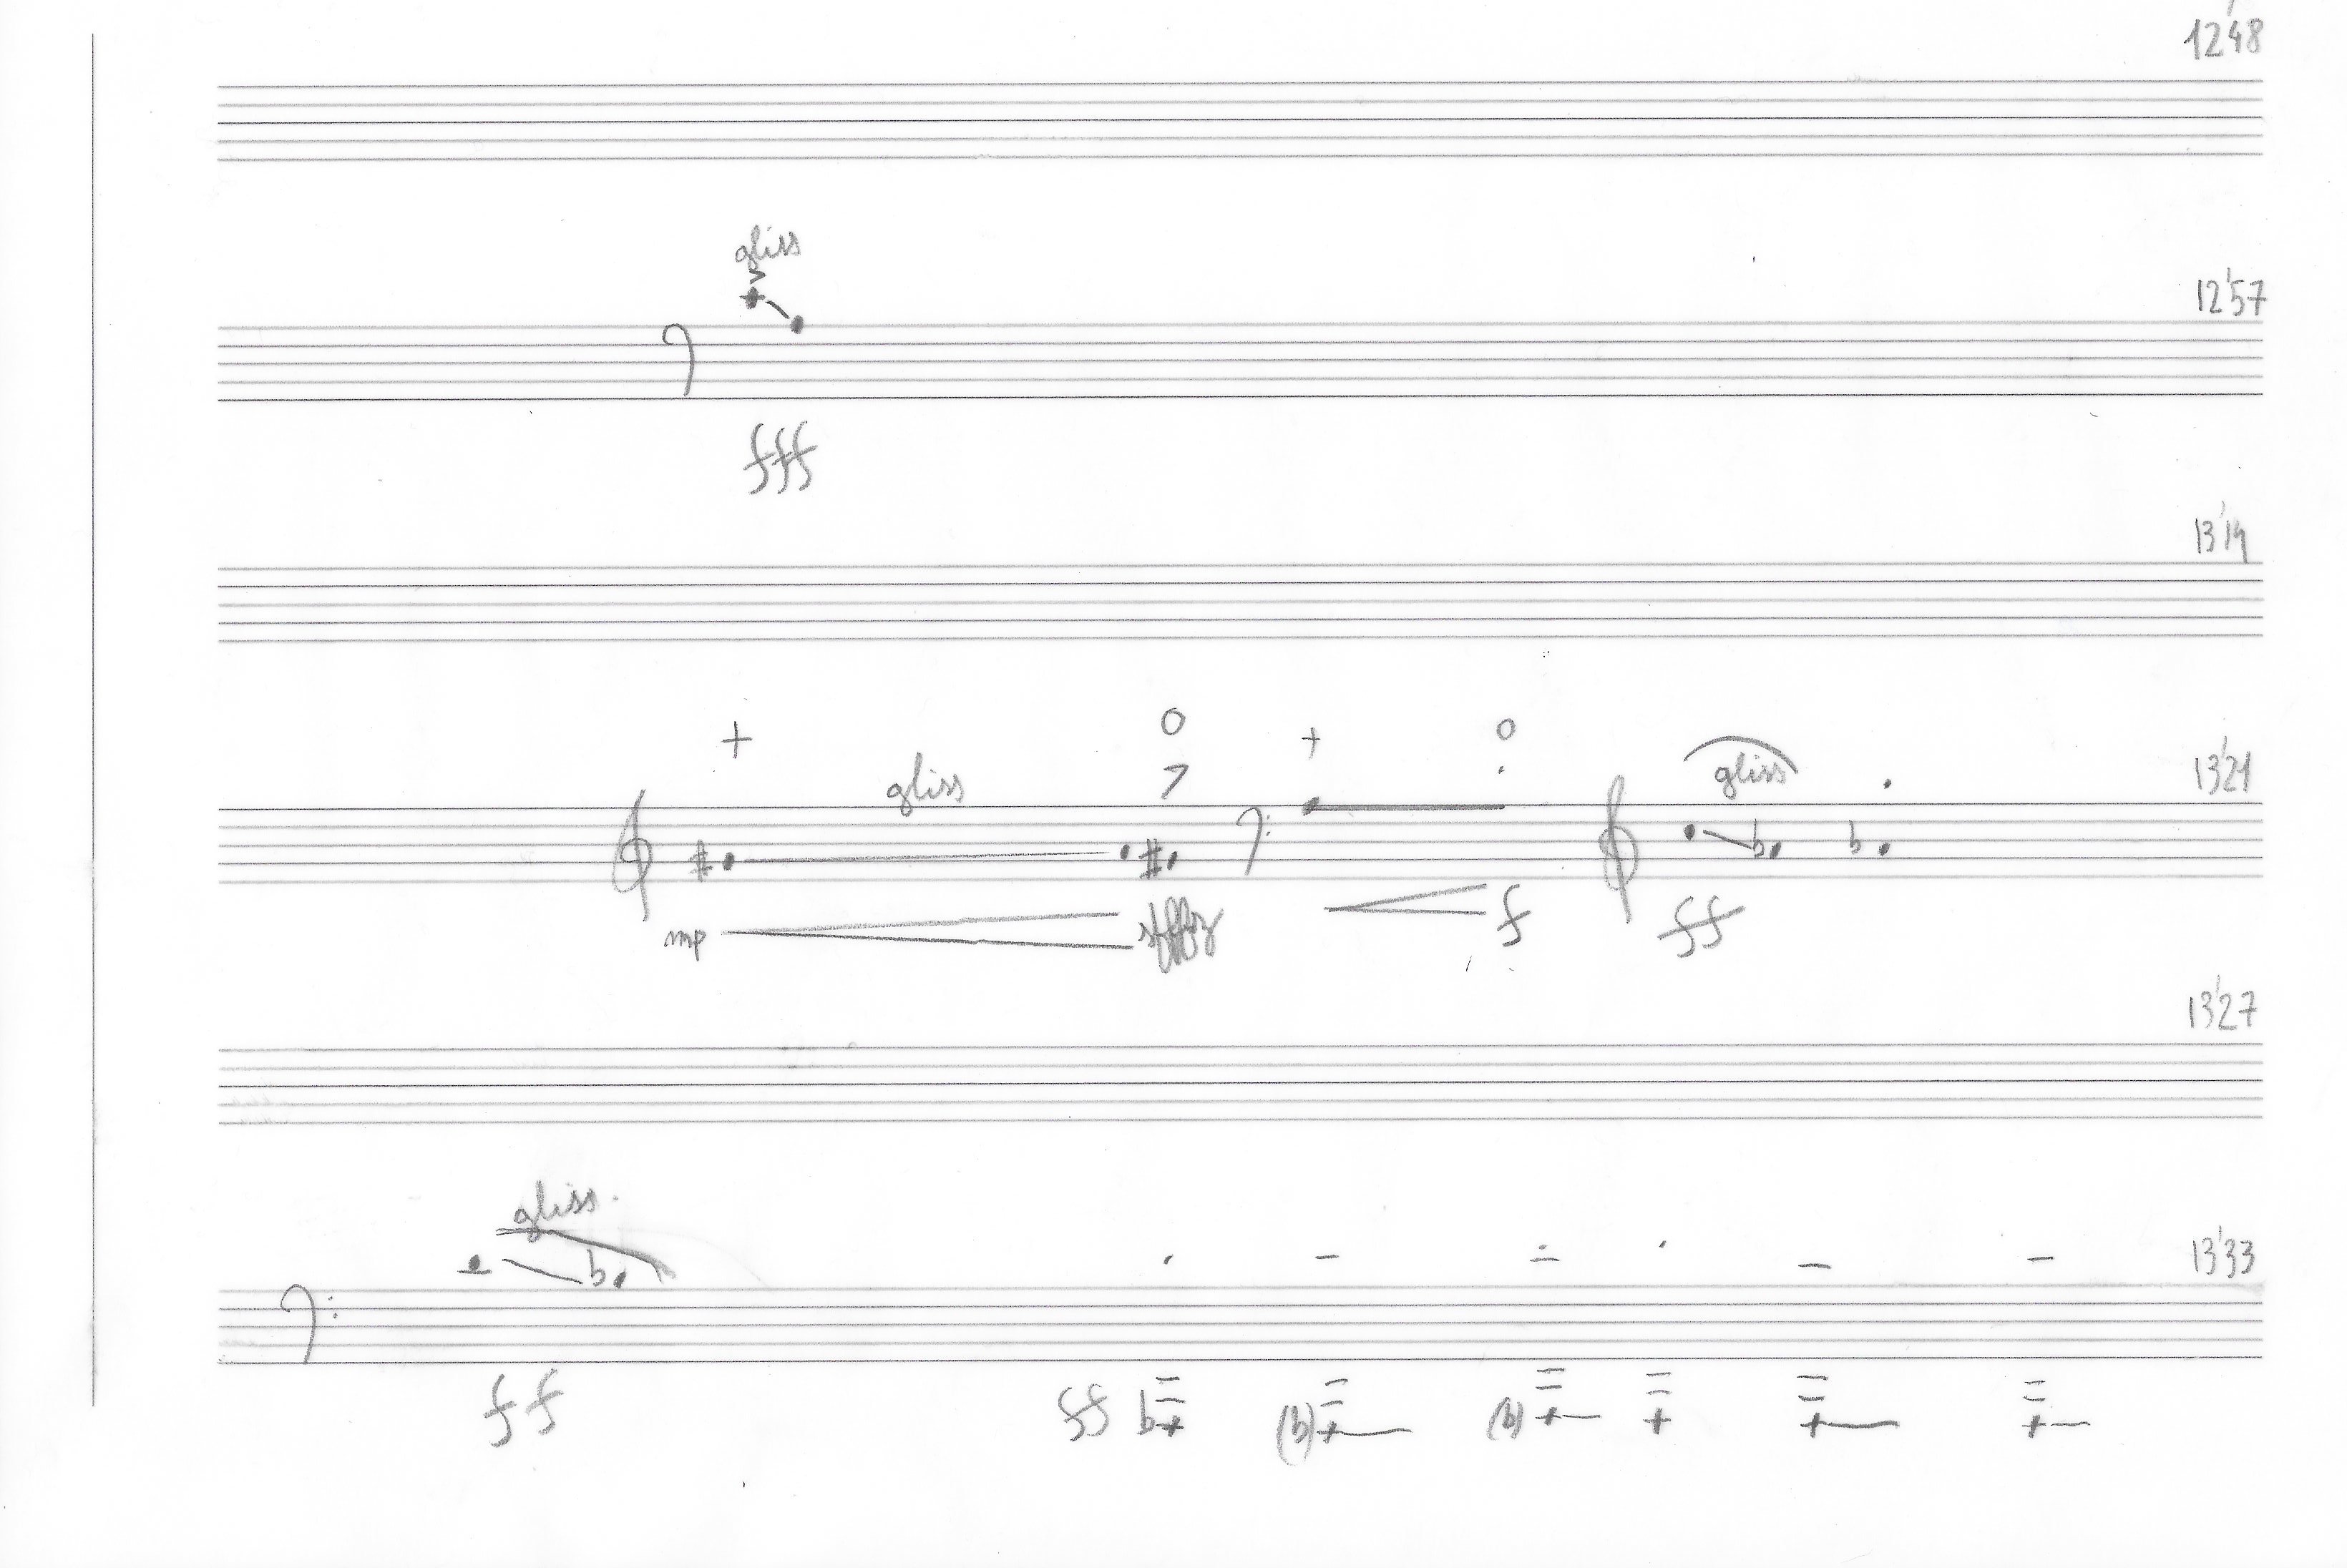 12'48
gliss
12'57
fff
13'19
gliss
gliss
13'21
mp
sfffz
f
ff
13'27
gliss.
13'33
ff
ff